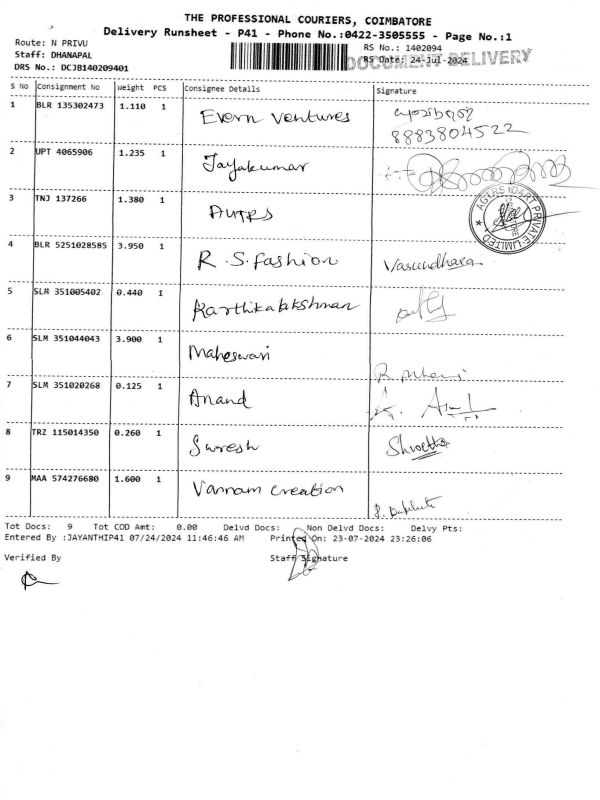 THE PROFESSIONAL COURIERS, COIMBATORE
Delivery Runsheet - P41 - Phone No.:0422-3505555 - Page No.:1
Route: N PRIVU
RS No.: 1402094
Staff: DHANAPAL
DOCUMENT DELIVERY
RS Date: 24-Jul-2024
DRS No.: DCJB140209401
S No Consignment No Weight PCS Consignee Details Signature
1 BLR 135302473 1.110 1 Evern ventures
8883804522
2 UPT 4065906 1.235 1 Jayakumar
3 TNJ 137266 1.380 1
PRIVATE LIMITED
4 BLR 5251028585 3.950 1 R.S.fashion Vasundhara
5 SLM 351005402 0.440 1 Karthikalakshman
6 SLM 351044043 3.900 1 Maheswari
7 SLM 351020268 0.125 1 Anand
8 TRZ 115014350 0.260 1 Suresh
9 MAA 574276680 1.600 1 Vannam creation
Tot Docs: 9 Tot COD Amt: 0.00 Delvd Docs: Non Delvd Docs: Delvy Pts:
Entered By :JAYANTHIP41 07/24/2024 11:46:46 AM Printed On: 23-07-2024 23:26:06
Verified By Staff Signature